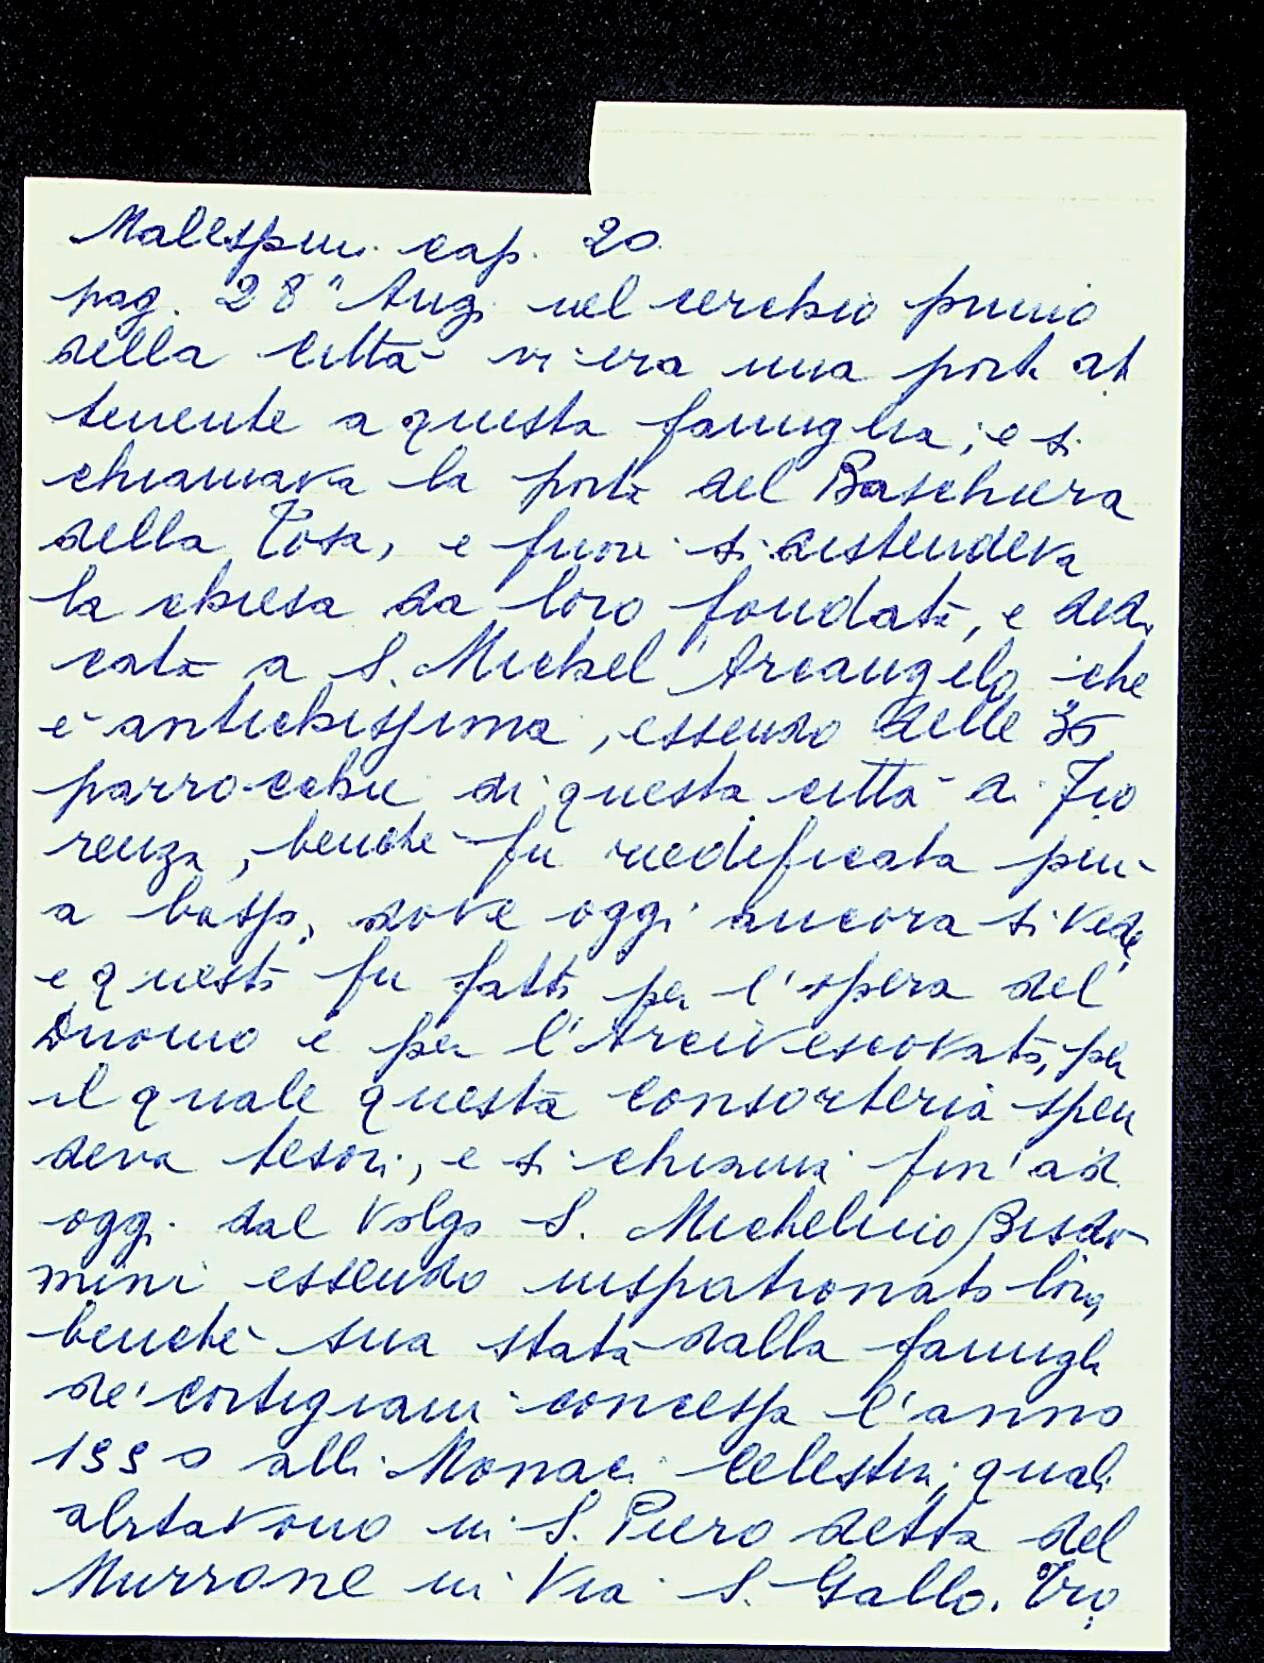 Malespini. cap. 20
pag. 28 " Anzi nel cerchio primo
della città vi era una porta at
tenente a questa famiglia; e si
chiamava la porta del Baschiera
della Tosa, e fuori si distendeva
la chiesa da loro fondata, e dedi
cata a S. Michel Arcangelo che
è antichissima, essendo delle 36
parrocchie di questa città di Fio
renza, benché fu riedificata più
a basso, dove oggi ancora si vede,
e questo fu fatto per l'opera del
Duomo e per l'Arcivescovato, per
il quale questa consorteria spen
deva tesori, e si chiama fin' ad
oggi dal volgo S. Michelino Bisdo
mini essendo iuspatronato loro,
benché sua stata dalla famiglia
de' Cortigiani concessa l'anno
alli Monaci Celestini, quali
abitavono in S. Piero detto del
Murrone in Via S. Gallo. Tro